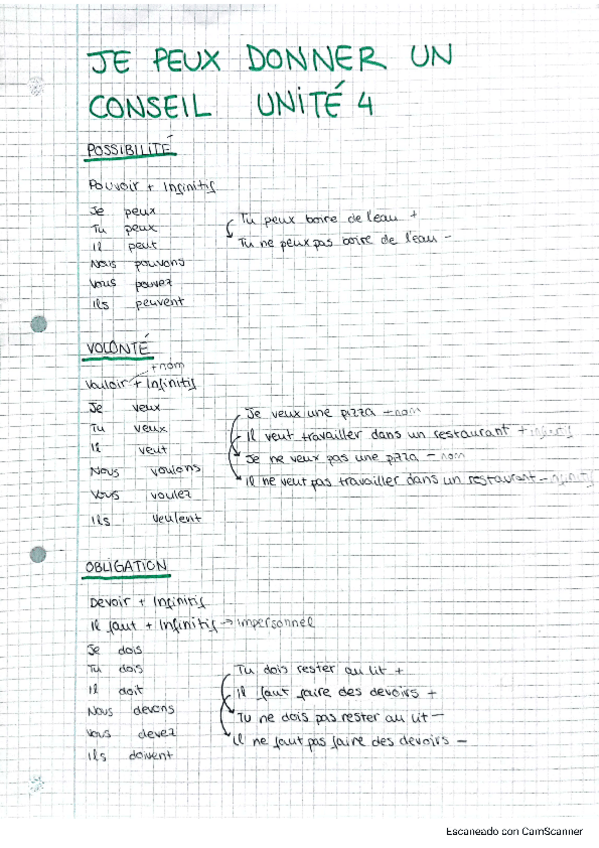 JE PEUX DONNER UN
CONSEIL UNITÉ 4
POSSIBILITÉ
Pouvoir + Infinitif
Je peux
Tu peux
Il peut
Nous pouvons
Vous pouvez
Ils peuvent
Tu peux boire de l'eau +
Tu ne peux pas boire de l'eau -
VOLONTÉ
+ nom
Vouloir + Infinitif
Je veux
Tu veux
Il veut
Nous voulons
Vous voulez
Ils veulent
Je veux une pizza + nom
Il veut travailler dans un restaurant + infinitif
Je ne veux pas une pizza - nom
Il ne veut pas travailler dans un restaurant -
OBLIGATION
Devoir + Infinitif
Il faut + Infinitif → impersonnel
Je dois
Tu dois
Il doit
Nous devons
Vous devez
Ils doivent
Tu dois rester au lit +
Il faut faire des devoirs +
Tu ne dois pas rester au lit -
Il ne faut pas faire des devoirs -
Escaneado con CamScanner